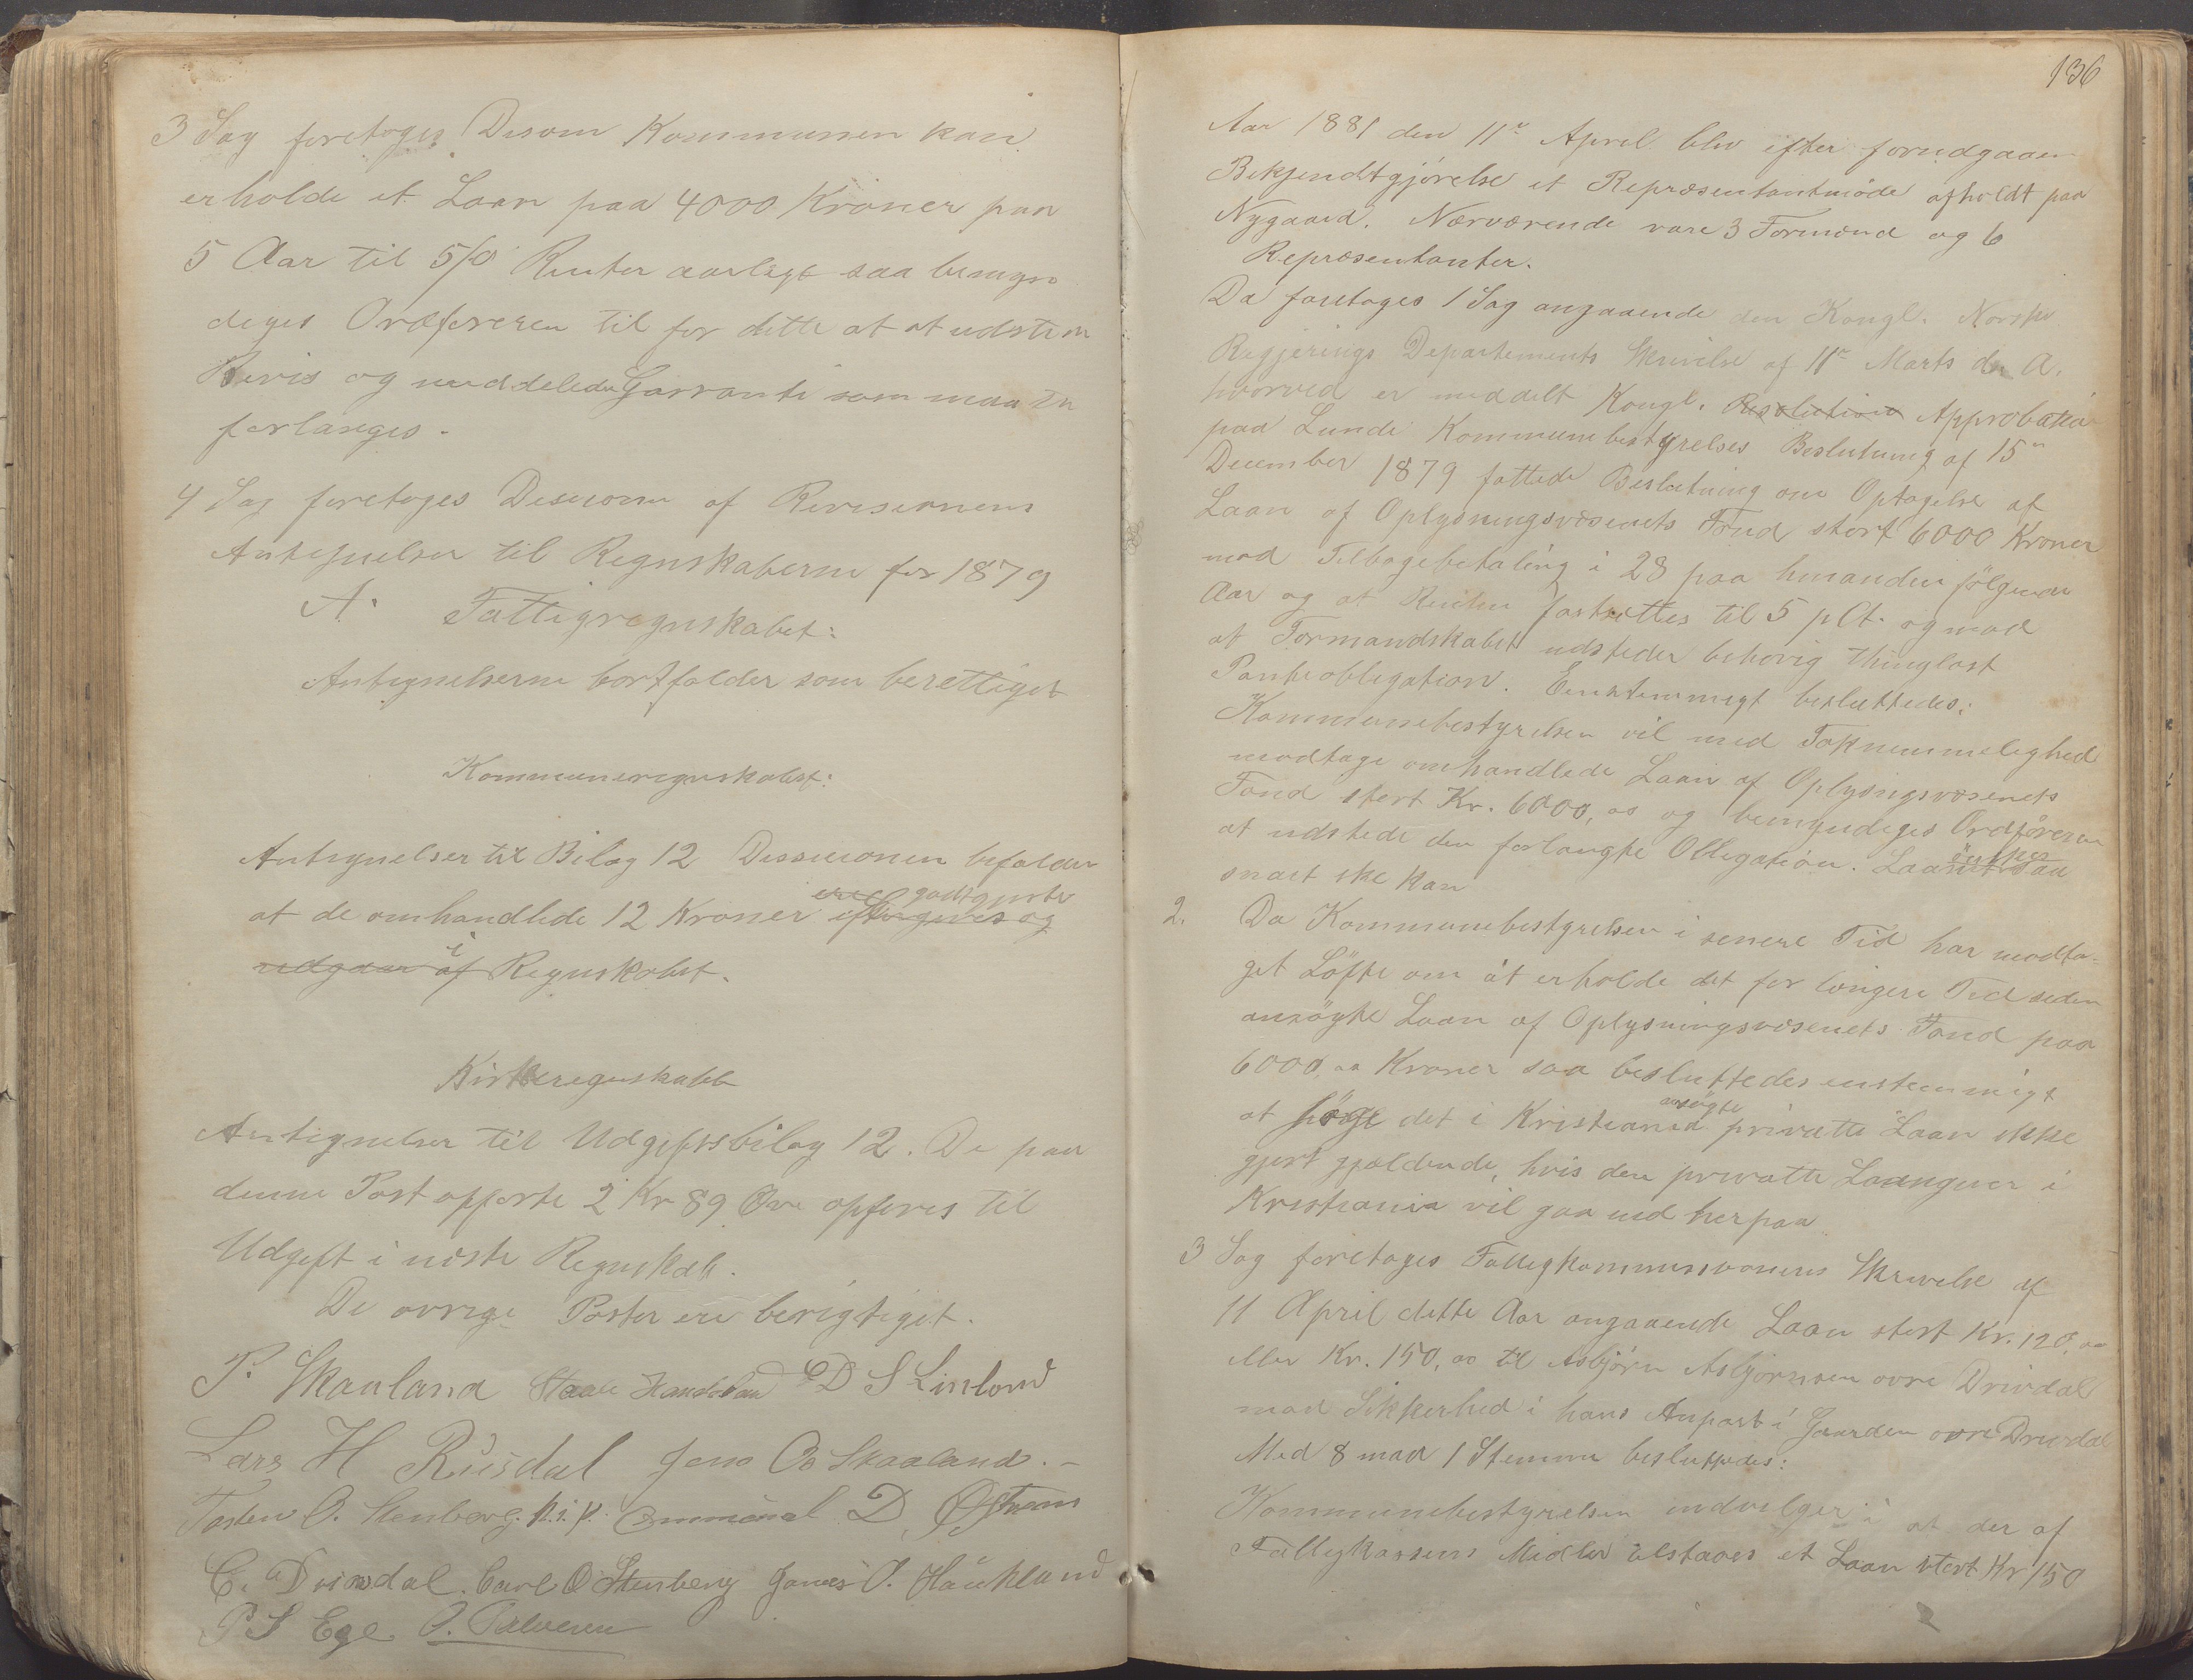 3 Sag foretoges Disom Kommunen kan
erholde et Laan paa 4000 Kroner paa
5 Aar til 5/0 Renter aarligt saa bemyn
diges Ordføreren til for dette at at udstede
Bevis og meddelede Garranti som maatte
forlanges.
4 Sag foretoges Desision af Revisionens
Antegnelser til Regnskaberne for 1879
A. Fattigregnskabet:
Antegnelserne bortfalder som berettiget
Kommuneregnskabet:
Antegnelser til Bilag 12 Dessisionen befalder
ere godtgjorte
at de omhandlede 12 Kroner eftergives og
i
udgaar af Regnskabet.
Kirkeregnskabet
Antegnelser til Udgiftsbilag 12. De paa
denne Post opførte 2 Kr 89 Øre opføres til
Udgift i næste Regnskab.
De øvrige Poster ere berigtiget.
P. Skauland Staale Haukeland D S Linlond
Lars H Rusdal Jens O Skaaland.
Torsten O. Stenberg. p.i.p. Emmanuel D. Østreim
C. Drivdal. Carl O Stenberg Jonas O. Haukland
P S Ege. O. Salvesen
136
Aar 1881 den 11te April blev efter forudgaaen
Bekjendtgjörelse et Repræsentantmöde afholdt paa
Nygaard. Nærværende vare 3 Formænd og 6
Repræsentanter.
Da foretoges 1 Sag angaaende den Kongl. Norske
Regjerings Departements Skrivelse af 11te Marts d. A.
hvorved er meddelt Kongl. Resolution Approbation
paa Lunde Kommunebestyrelses Beslutning af 15de
December 1879 fattede Beslutning om Optagelse af
Laan af Oplysningsvæsenets Fond stort 6000 Kroner
mod Tilbagebetaling i 28 paa hinanden fölgende
Aar og at Renten fastsættes til 5 pCt. og mod
at Formandskabet udsteder behörig thinglæst
Panteobligation. Eenstemmigt besluttedes:
Kommunebestyrelsen vil med Taknemmelighed
modtage omhandlede Laan af Oplysningsvæsenets
Fond stort Kr. 6000,00 og bemyndiges Ordföreren
at udstede den forlangte Obligation. Laanet önskes saa
snart ske kan
2. Da Kommunebestyrelsen i senere Tid har modta-
get Löfte om at erholde det for længere Tid siden
ansögte Laan af Oplysningsvæsenets Fond paa
6000,00 Kroner saa besluttedes enstemmigt
ansögte
at söge det i Kristiania private Laan ikke
gjort gjældende, hvis den private Laangiver i
Kristiania vil gaa ind herpaa
3 Sag foretoges Fattigkommissionens Skrivelse af
11 April dette Aar angaaende Laan stort Kr. 120,00
eller Kr. 150,00 til Asbjörn Asbjörnsen övre Drivdal
mod Sikkerhed i hans Anpart i Gaarden övre Drivdal
Med 8 mod 1 Stemme besluttedes:
Kommunebestyrelsen indvilger i at der af
Fattigkassens Midler tilstaaes et Laan stort Kr 150